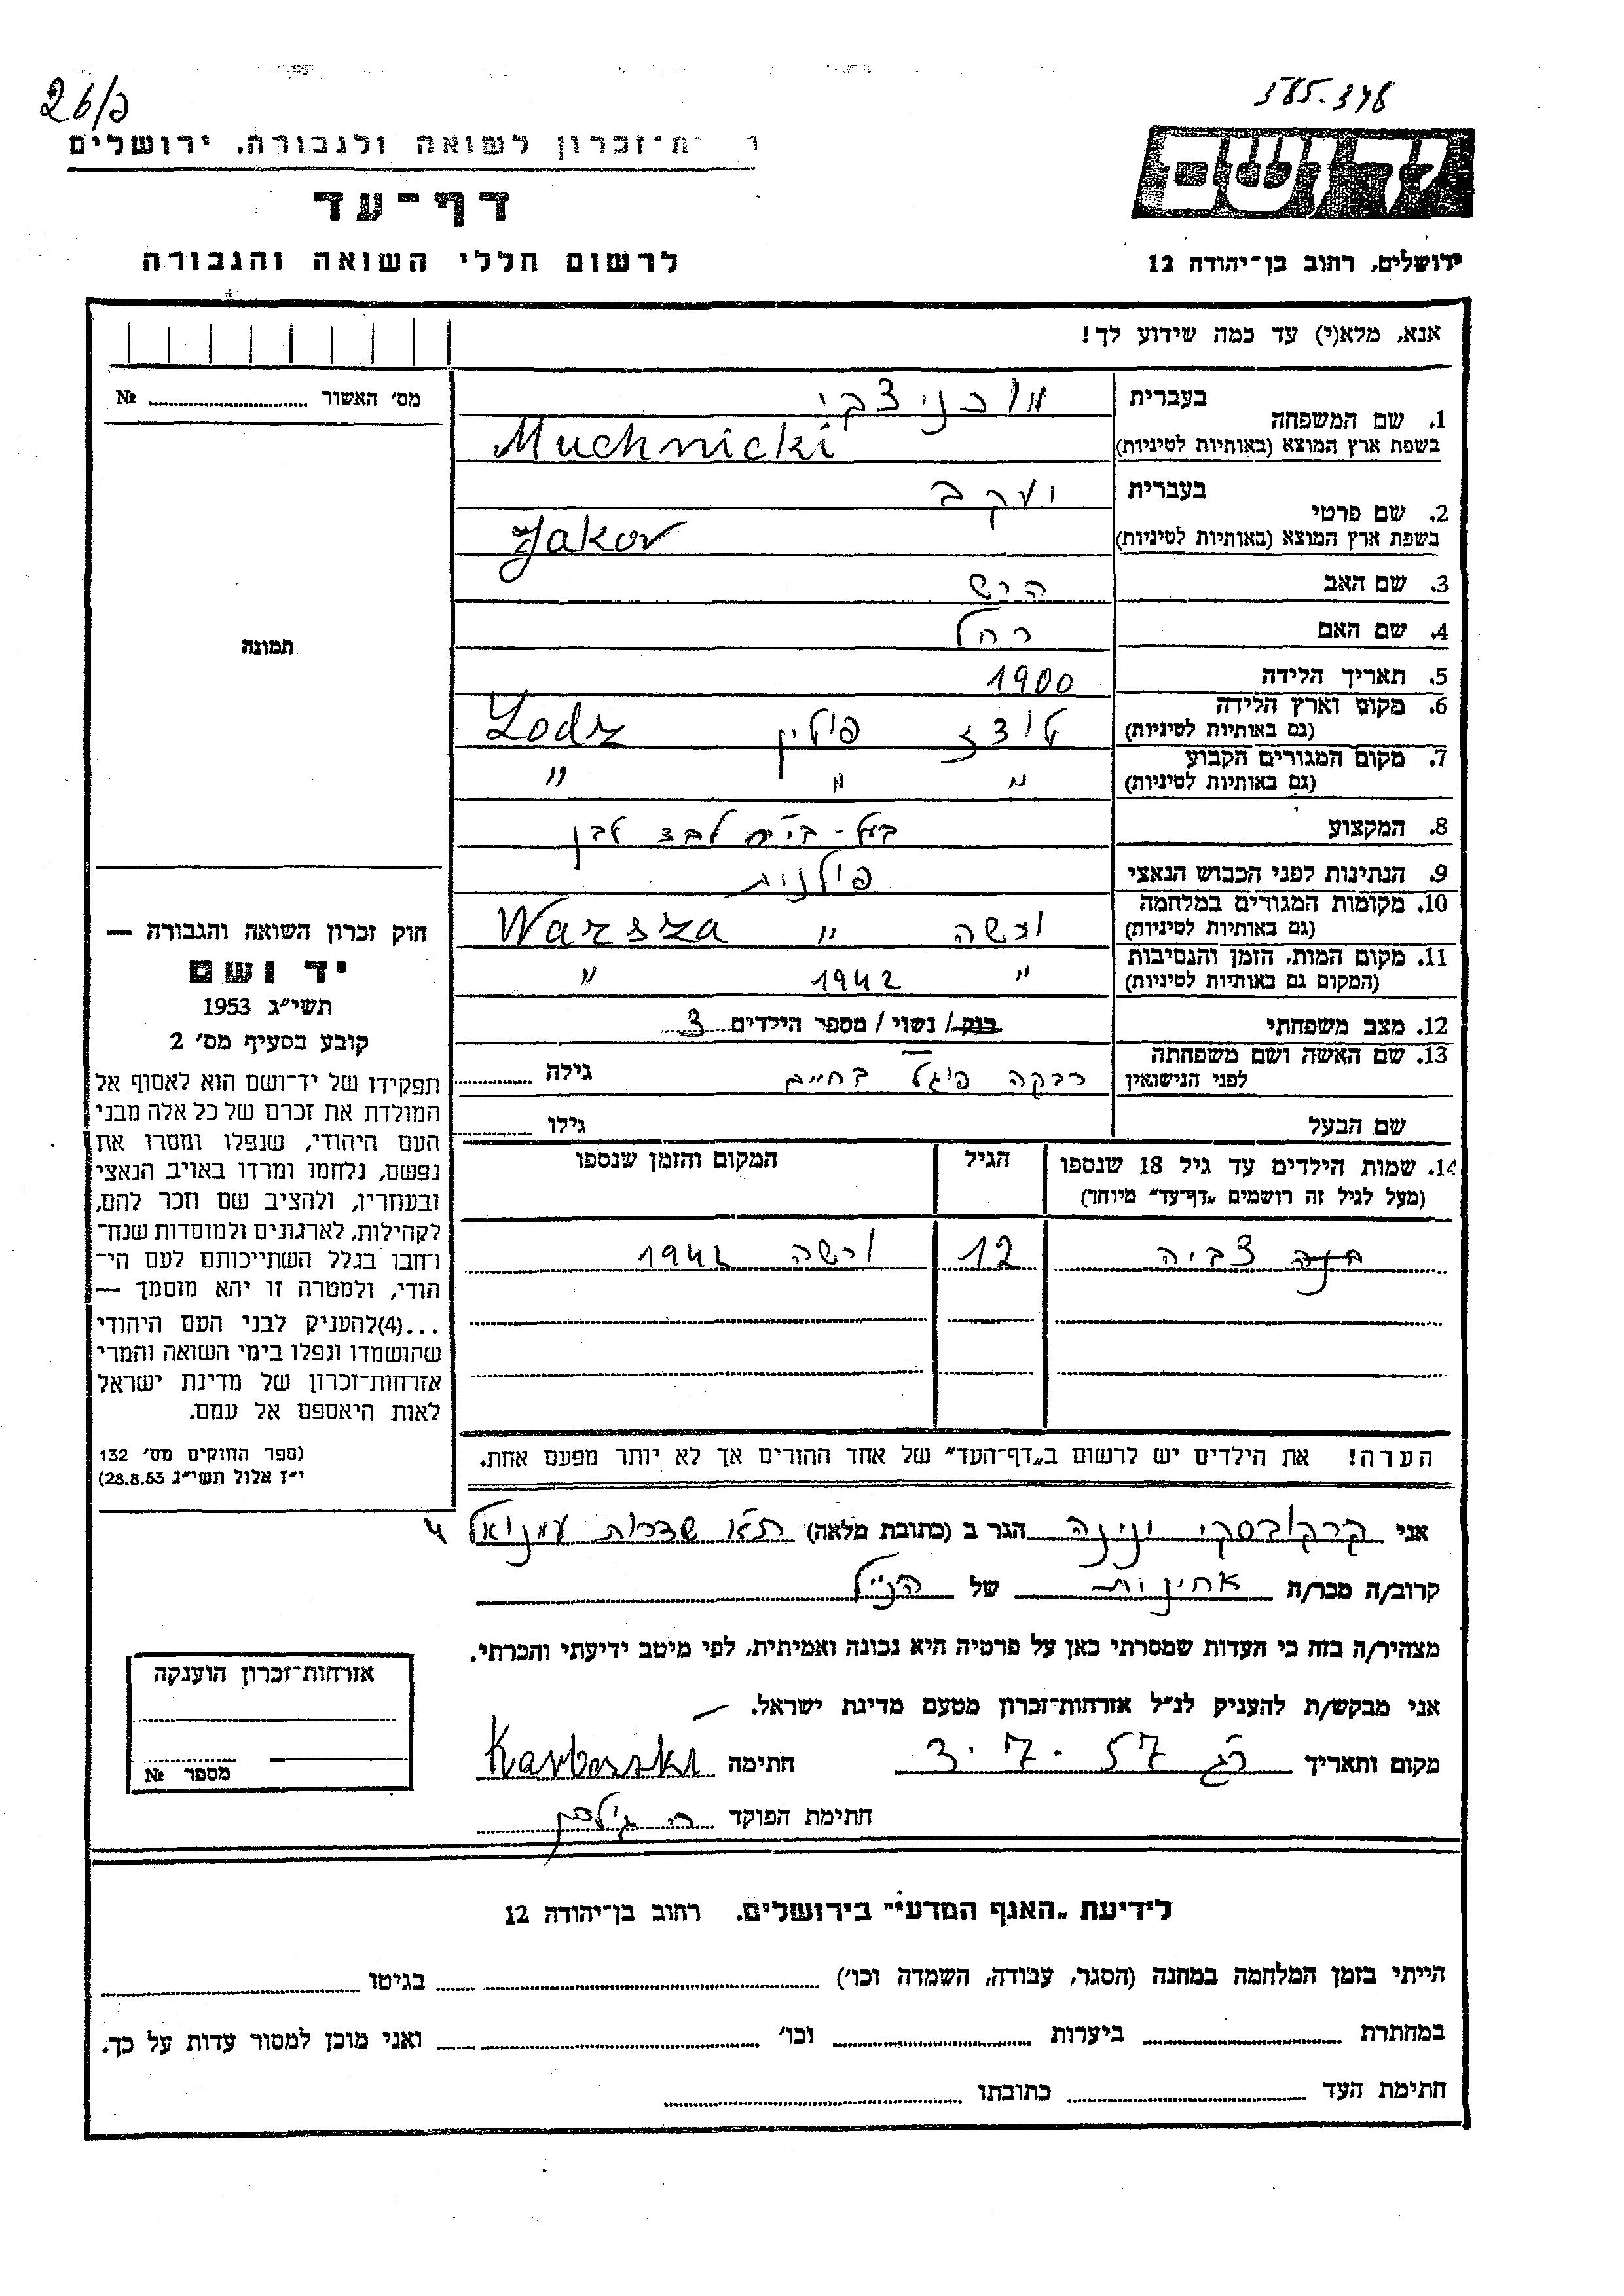 26/כ
585.348
ית־זכרון לשואה ולגבורה, ירושלים
ידושם
דף־עד
לרשום חללי השואה והגבורה
ירושלים, רחוב בן־יהודה 12
אנא, מלא(י) עד כמה שידוע לך!
מס׳ האשור № 
תמונה
1. שם המשפחה בעברית מוכניצקי
בשפת ארץ המוצא (באותיות לטיניות) Muchnicki
2. שם פרטי בעברית יעקב
בשפת ארץ המוצא (באותיות לטיניות) Jakov
3. שם האב הרש
4. שם האם רחל
5. תאריך הלידה 1900
6. מקום וארץ הלידה (גם באותיות לטיניות) לודז פולין Lodz
7. מקום המגורים הקבוע (גם באותיות לטיניות) " " "
8. המקצוע בעל - בי"ח לבד לבן
9. הנתינות לפני הכבוש הנאצי פולנית
10. מקומות המגורים במלחמה (גם באותיות לטיניות) ורשה " Warsza
11. מקום המות, הזמן והנסיבות (המקום גם באותיות לטיניות) " 1942 "
12. מצב משפחתי רוק/ נשוי / מספר הילדים 3
13. שם האשה ושם משפחתה לפני הנישואין רבקה פיגל בחיים גילה
שם הבעל גילו
14. שמות הילדים עד גיל 18 שנספו הגיל המקום והזמן שנספו
(מעל לגיל זה רושמים „דף־עד" מיוחד)
חנה צביה 12 ורשה 1942
הערה! את הילדים יש לרשום ב„דף־העד" של אחד ההורים אך לא יותר מפעם אחת.
חוק זכרון השואה והגבורה —
יד ושם
תשי״ג 1953
קובע בסעיף מס׳ 2
תפקידו של יד־ושם הוא לאסוף אל
המולדת את זכרם של כל אלה מבני
העם היהודי, שנפלו ומסרו את
נפשם, נלחמו ומרדו באויב הנאצי
ובעוזריו, ולהציב שם וזכר להם,
לקהילות, לארגונים ולמוסדות שנח־
רחבו בגלל השתייכותם לעם הי־
הודי, ולמטרה זו יהא מוסמך —
...(4)להעניק לבני העם היהודי
שהושמדו ונפלו בימי השואה והמרי
אזרחות־זכרון של מדינת ישראל
לאות היאספם אל עמם.
(ספר החוקים מס׳ 132
י״ז אלול תשי״ג 28.8.53)
אני קרקובסקי ינינה הגר ב (כתובת מלאה) ת"א שדרות עמנואל 4
קרוב/ה מכר/ה אחינות של הנ"ל
מצהיר/ה בזה כי העדות שמסרתי כאן על פרטיה היא נכונה ואמיתית, לפי מיטב ידיעתי והכרתי.
אני מבקש/ת להעניק לנ״ל אזרחות־זכרון מטעם מדינת ישראל.
מקום ותאריך רג 3.7.57 חתימה
חתימת הפוקד
אזרחות־זכרון הוענקה
מספר №
לידיעת „האגף המדעי" בירושלים, רחוב בן־יהודה 12
הייתי בזמן המלחמה במחנה (הסגר, עבודה, השמדה וכו׳) בגיטו
במחתרת ביערות וכו׳ ואני מוכן למסור עדות על כך.
חתימת העד כתובתו